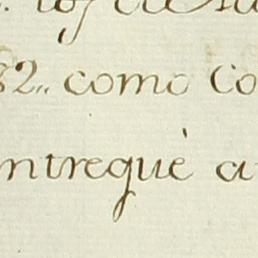 82,, como co
ntreguè a